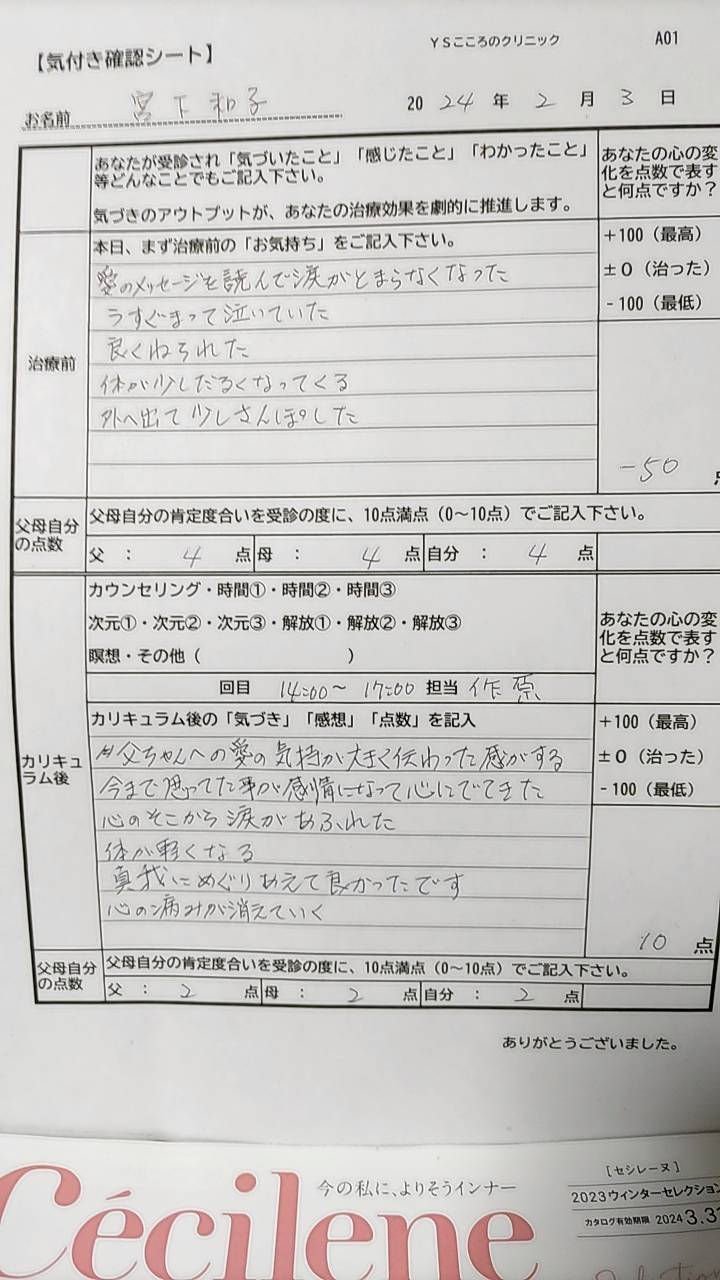 【気付き確認シート】
YSこころのクリニック
A01
お名前 宮下和子
2024年2月3日
あなたが受診され「気づいたこと」「感じたこと」「わかったこと」
等どんなことでもご記入下さい。
気づきのアウトプットが、あなたの治療効果を劇的に推進します。
あなたの心の変
化を点数で表す
と何点ですか?
治療前
本日、まず治療前の「お気持ち」をご記入下さい。
愛のメッセージを読んで涙がとまらなくなった
うずくまって泣いていた
良くねられた
体が少しだるくなってくる
外へ出て少しさんぽした
+100(最高)
±0(治った)
-100(最低)
-50 点
父母自分
の点数
父母自分の肯定度合いを受診の度に、10点満点(0~10点)でご記入下さい。
父 : 4 点 母 : 4 点 自分 : 4 点
カリキュ
ラム後
カウンセリング・時間①・時間②・時間③
次元①・次元②・次元③・解放①・解放②・解放③
瞑想・その他( )
回目 14:00~17:00 担当 作原
あなたの心の変
化を点数で表す
と何点ですか?
カリキュラム後の「気づき」「感想」「点数」を記入
父ちゃんへの愛の気持が大きく伝わった感がする
今まで思ってた事が感情になって心にでてきた
心のそこから涙があふれた
体が軽くなる
真我にめぐりあえて良かったです
心の病みが消えていく
+100(最高)
±0(治った)
-100(最低)
10 点
父母自分
の点数
父母自分の肯定度合いを受診の度に、10点満点(0~10点)でご記入下さい。
父 : 2 点 母 : 2 点 自分 : 2 点
ありがとうございました。
Cécilene
今の私に、よりそうインナー
[セシレーヌ]
2023ウィンターセレクション
カタログ有効期限 2024 3.31